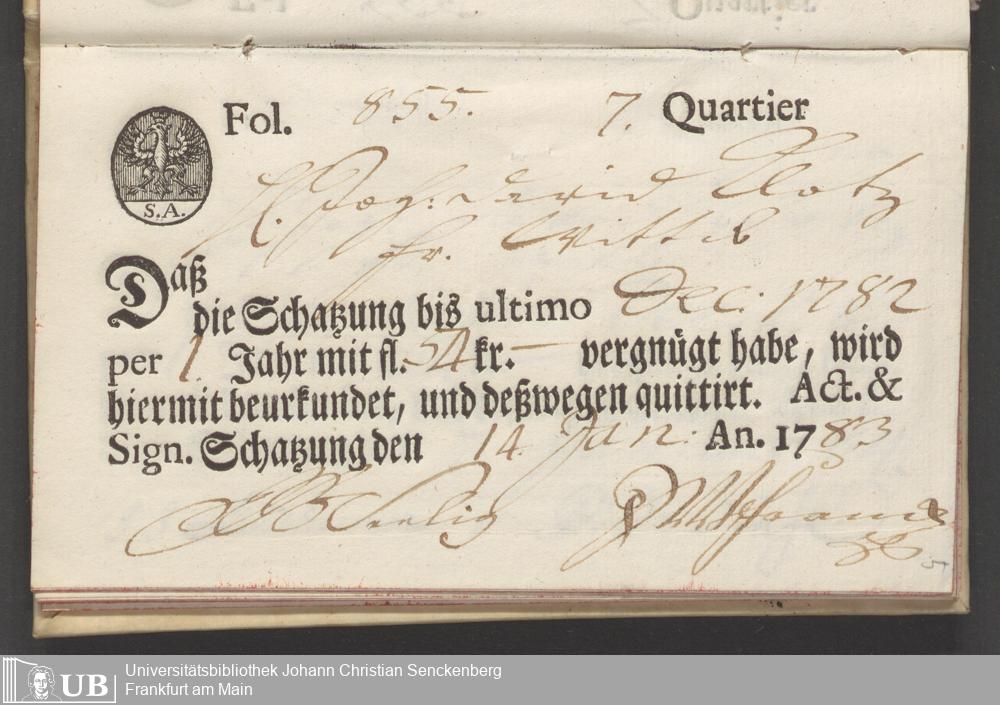 Fol. 855. 7. Quartier
S.A.
H. Joh: David Klotz
fr. Wittib
Daß
die Schatzung bis ultimo Dec: 1782
per 1 Jahr mit fl. 54 kr. — vergnügt habe, wird
hiermit beurkundet, und deßwegen quittirt. Act. &
Sign. Schatzung den 14. Jan: An. 1783
Seelig
5
UB
Universitätsbibliothek Johann Christian Senckenberg
Frankfurt am Main